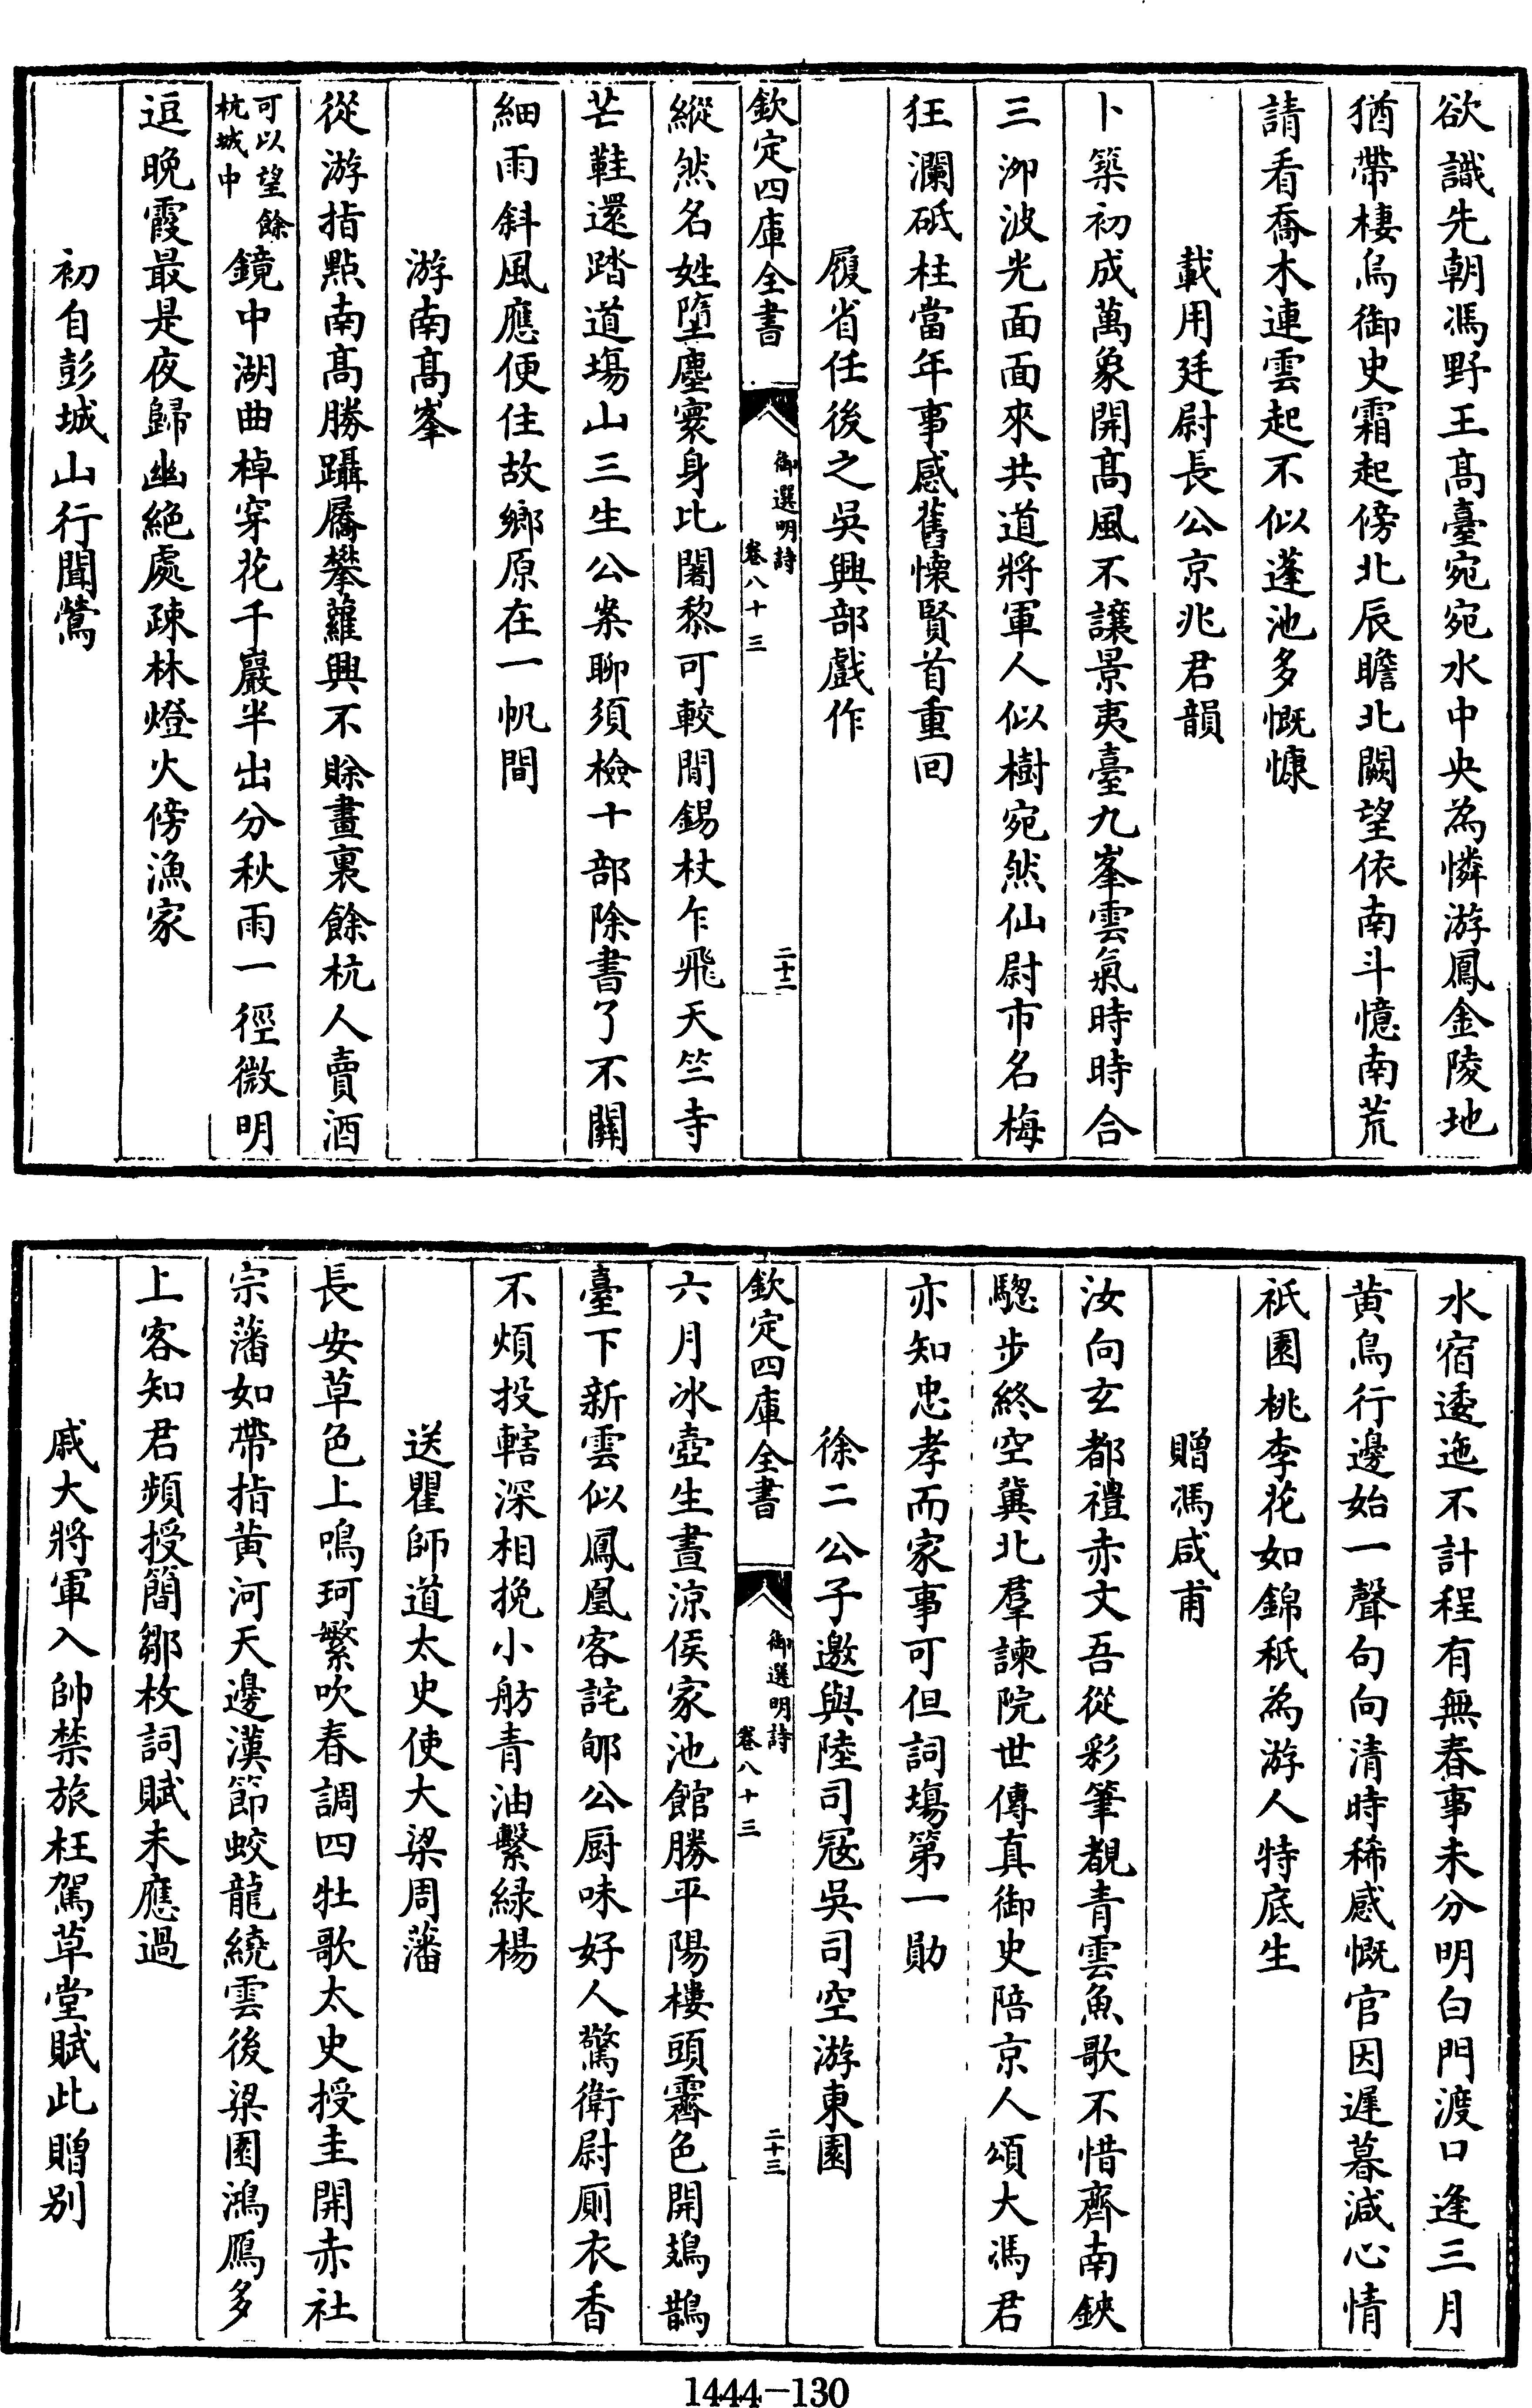 欲識先朝馮野王高臺宛宛水中央為憐游鳳金陵地
猶帶棲烏御史霜起傍北辰瞻北闕望依南斗憶南荒
請看喬木連雲起不似蓬池多慨慷
載用廷尉長公京兆君韻
卜築初成萬象開高風不讓景夷臺九峯雲氣時時合
三泖波光面面來共道將軍人似樹宛然仙尉市名梅
狂瀾砥柱當年事感舊懷賢首重回
履省任後之吳興部戲作
欽定四庫全書
御選明詩
卷八十三
二十二
縱然名姓墮塵寰身比闍黎可較閒錫杖乍飛天竺寺
芒鞋還踏道場山三生公案聊須檢十部除書了不關
細雨斜風應便住故鄉原在一帆間
游南高峯
從游指點南高勝躡屩攀蘿興不賒畫裏餘杭人賣酒
可以望餘
杭城中
鏡中湖曲棹穿花千巖半出分秋雨一徑微明
逗晚霞最是夜歸幽絕處疎林燈火傍漁家
初自彭城山行聞鶯
水宿逶迤不計程有無春事未分明白門渡口逢三月
黃鳥行邊始一聲句向清時稀感慨官因遲暮減心情
祇園桃李花如錦秖為游人特底生
贈馮咸甫
汝向玄都禮赤文吾從彩筆覩青雲魚歌不惜齊南鋏
驄步終空冀北羣諫院世傳真御史陪京人頌大馮君
亦知忠孝而家事可但詞塲第一勛
徐二公子邀與陸司寇吳司空游東園
欽定四庫全書
御選明詩
卷八十三
二十三
六月冰壺生晝涼侯家池館勝平陽樓頭霽色開鳷鵲
臺下新雲似鳳凰客詫郇公厨味好人驚衛尉廁衣香
不煩投轄深相挽小舫青油繫緑楊
送瞿師道太史使大梁周藩
長安草色上鳴珂繁吹春調四牡歌太史授圭開赤社
宗藩如帶指黃河天邊漢節蛟龍繞雲後梁園鴻鴈多
上客知君頻授簡鄒枚詞賦未應過
戚大將軍入帥禁旅枉駕草堂賦此贈別
1444-130